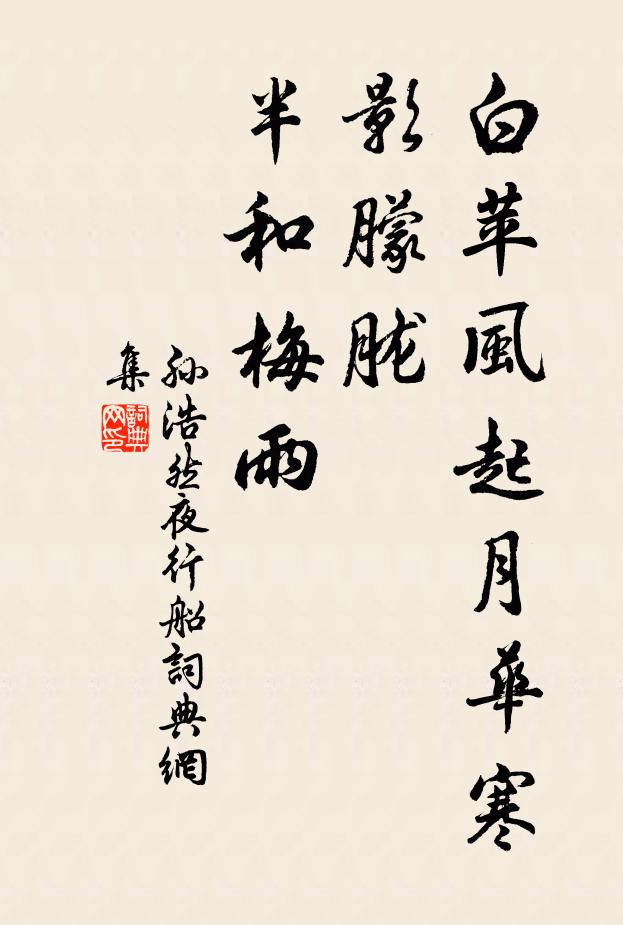 白苹風起月華寒
影朦朧
半和梅雨
孫浩然夜行船詞典網
集
詞典
网印